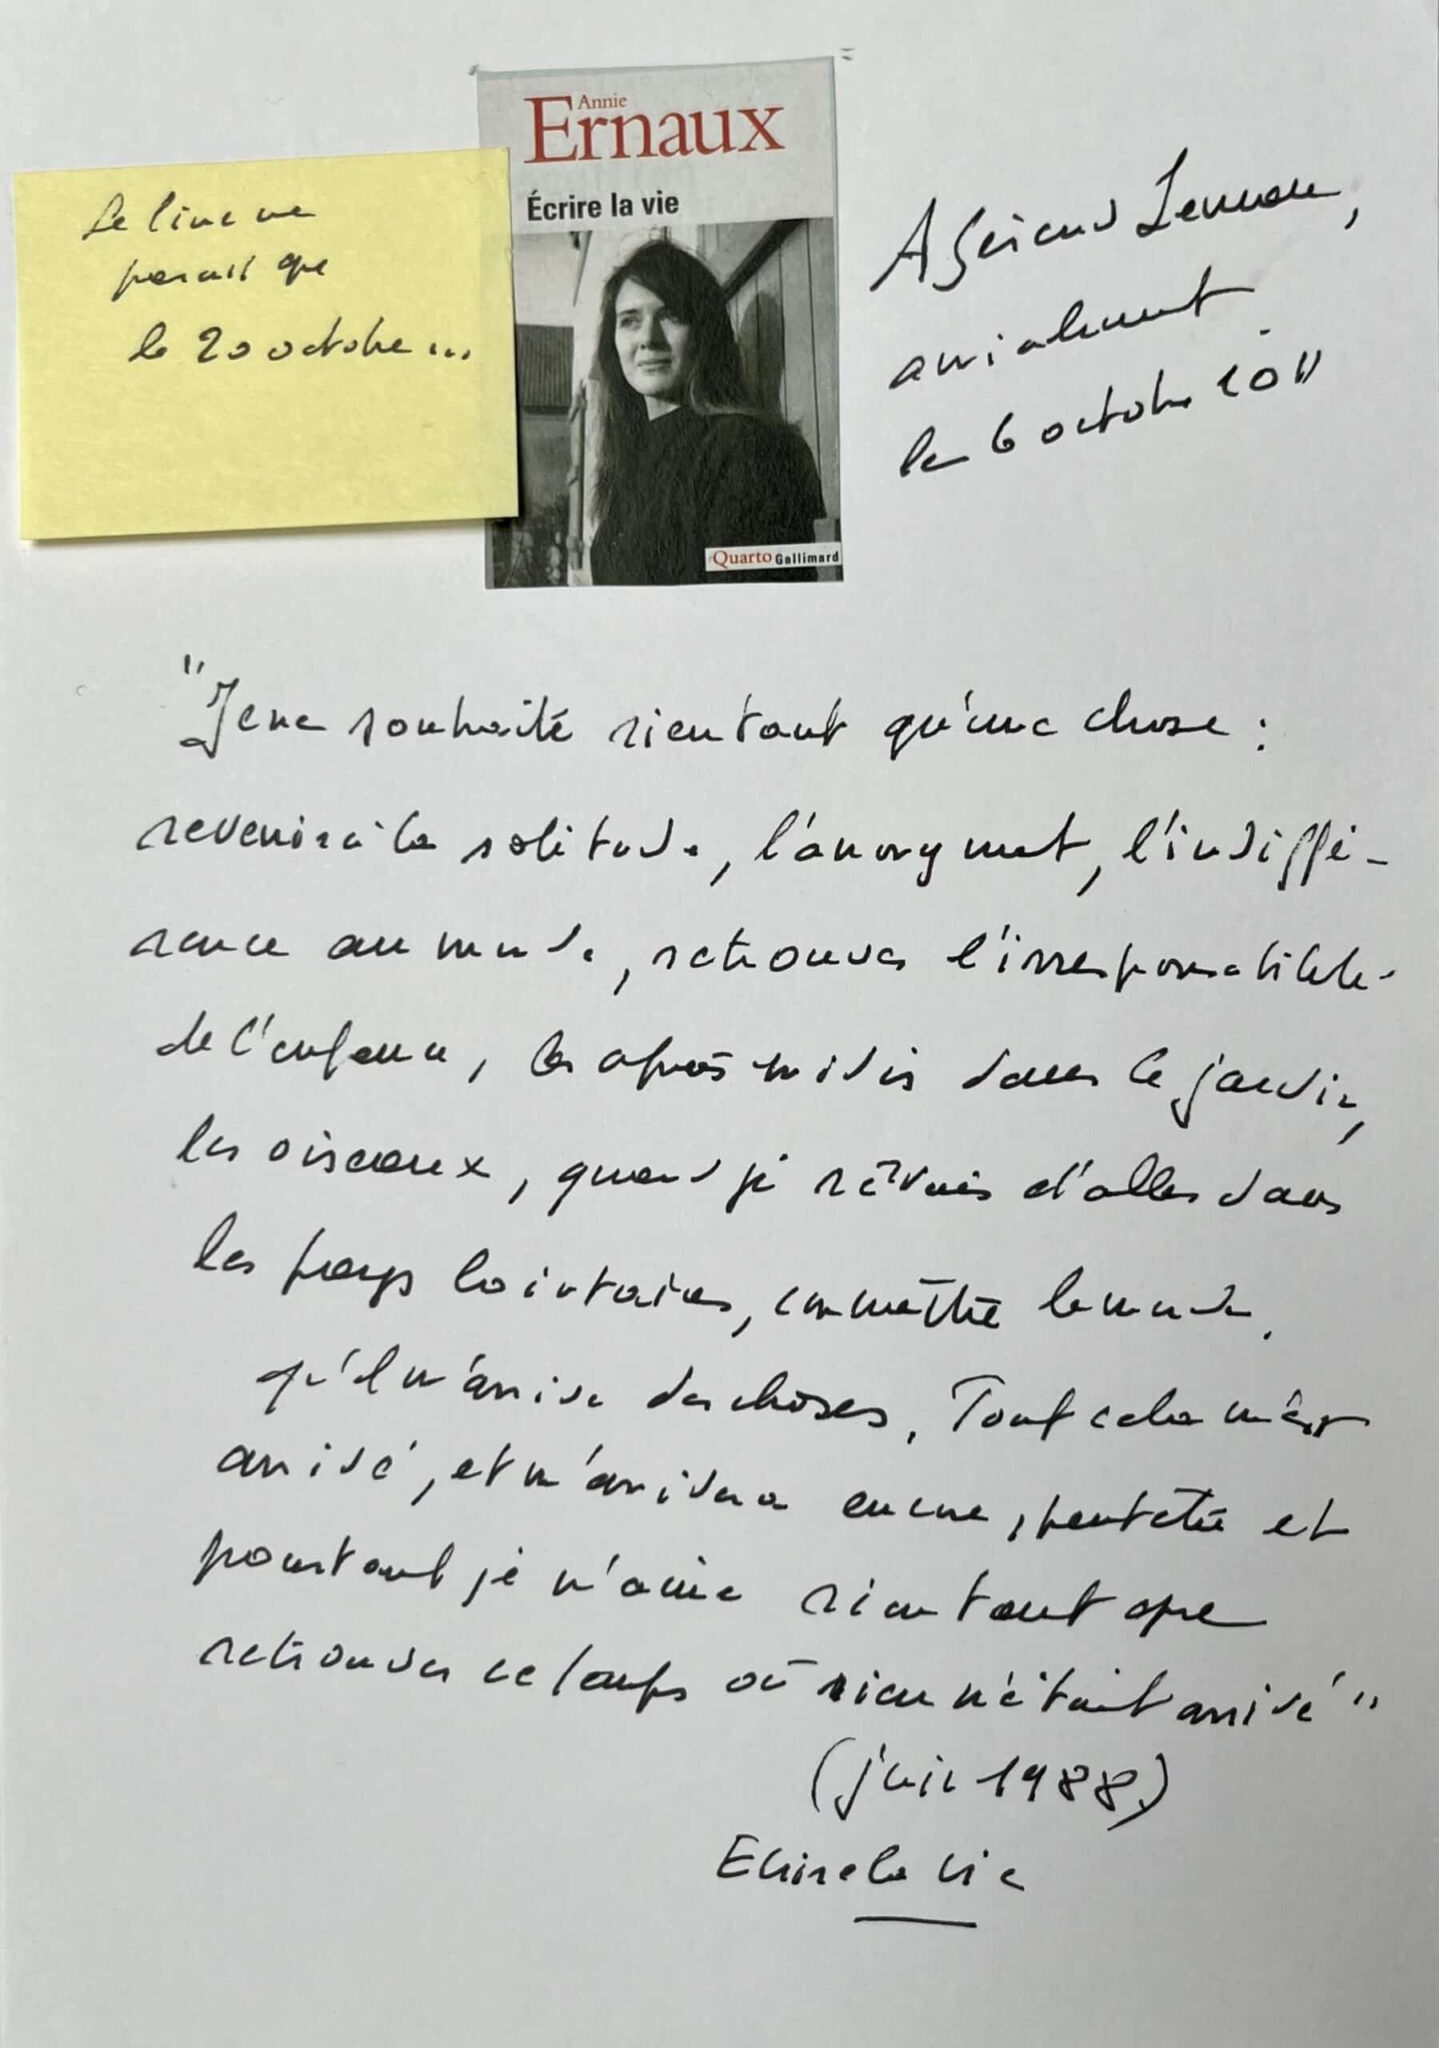 Annie
Ernaux
Écrire la vie
Quarto Gallimard
Le livre ne
paraît que
le 20 octobre...
A Gérard
amicalement
le 6 octobre 2011
"Je ne souhaite rien tant qu'une chose :
revenir à la solitude, l'anonymat, l'indiffé-
rence au monde, retrouver l'irresponsabilité
de l'enfance, les après-midis dans le jardin,
les oiseaux, quand je rêvais d'aller dans
les pays lointains, connaître le monde.
qu'il m'arrive des choses. Tout cela m'est
arrivé, et m'arrivera encore, peut être et
pourtant je n'aime rien tant que
retrouver ce temps où rien n'était arrivé"
(juin 1988)
Ecrire la vie